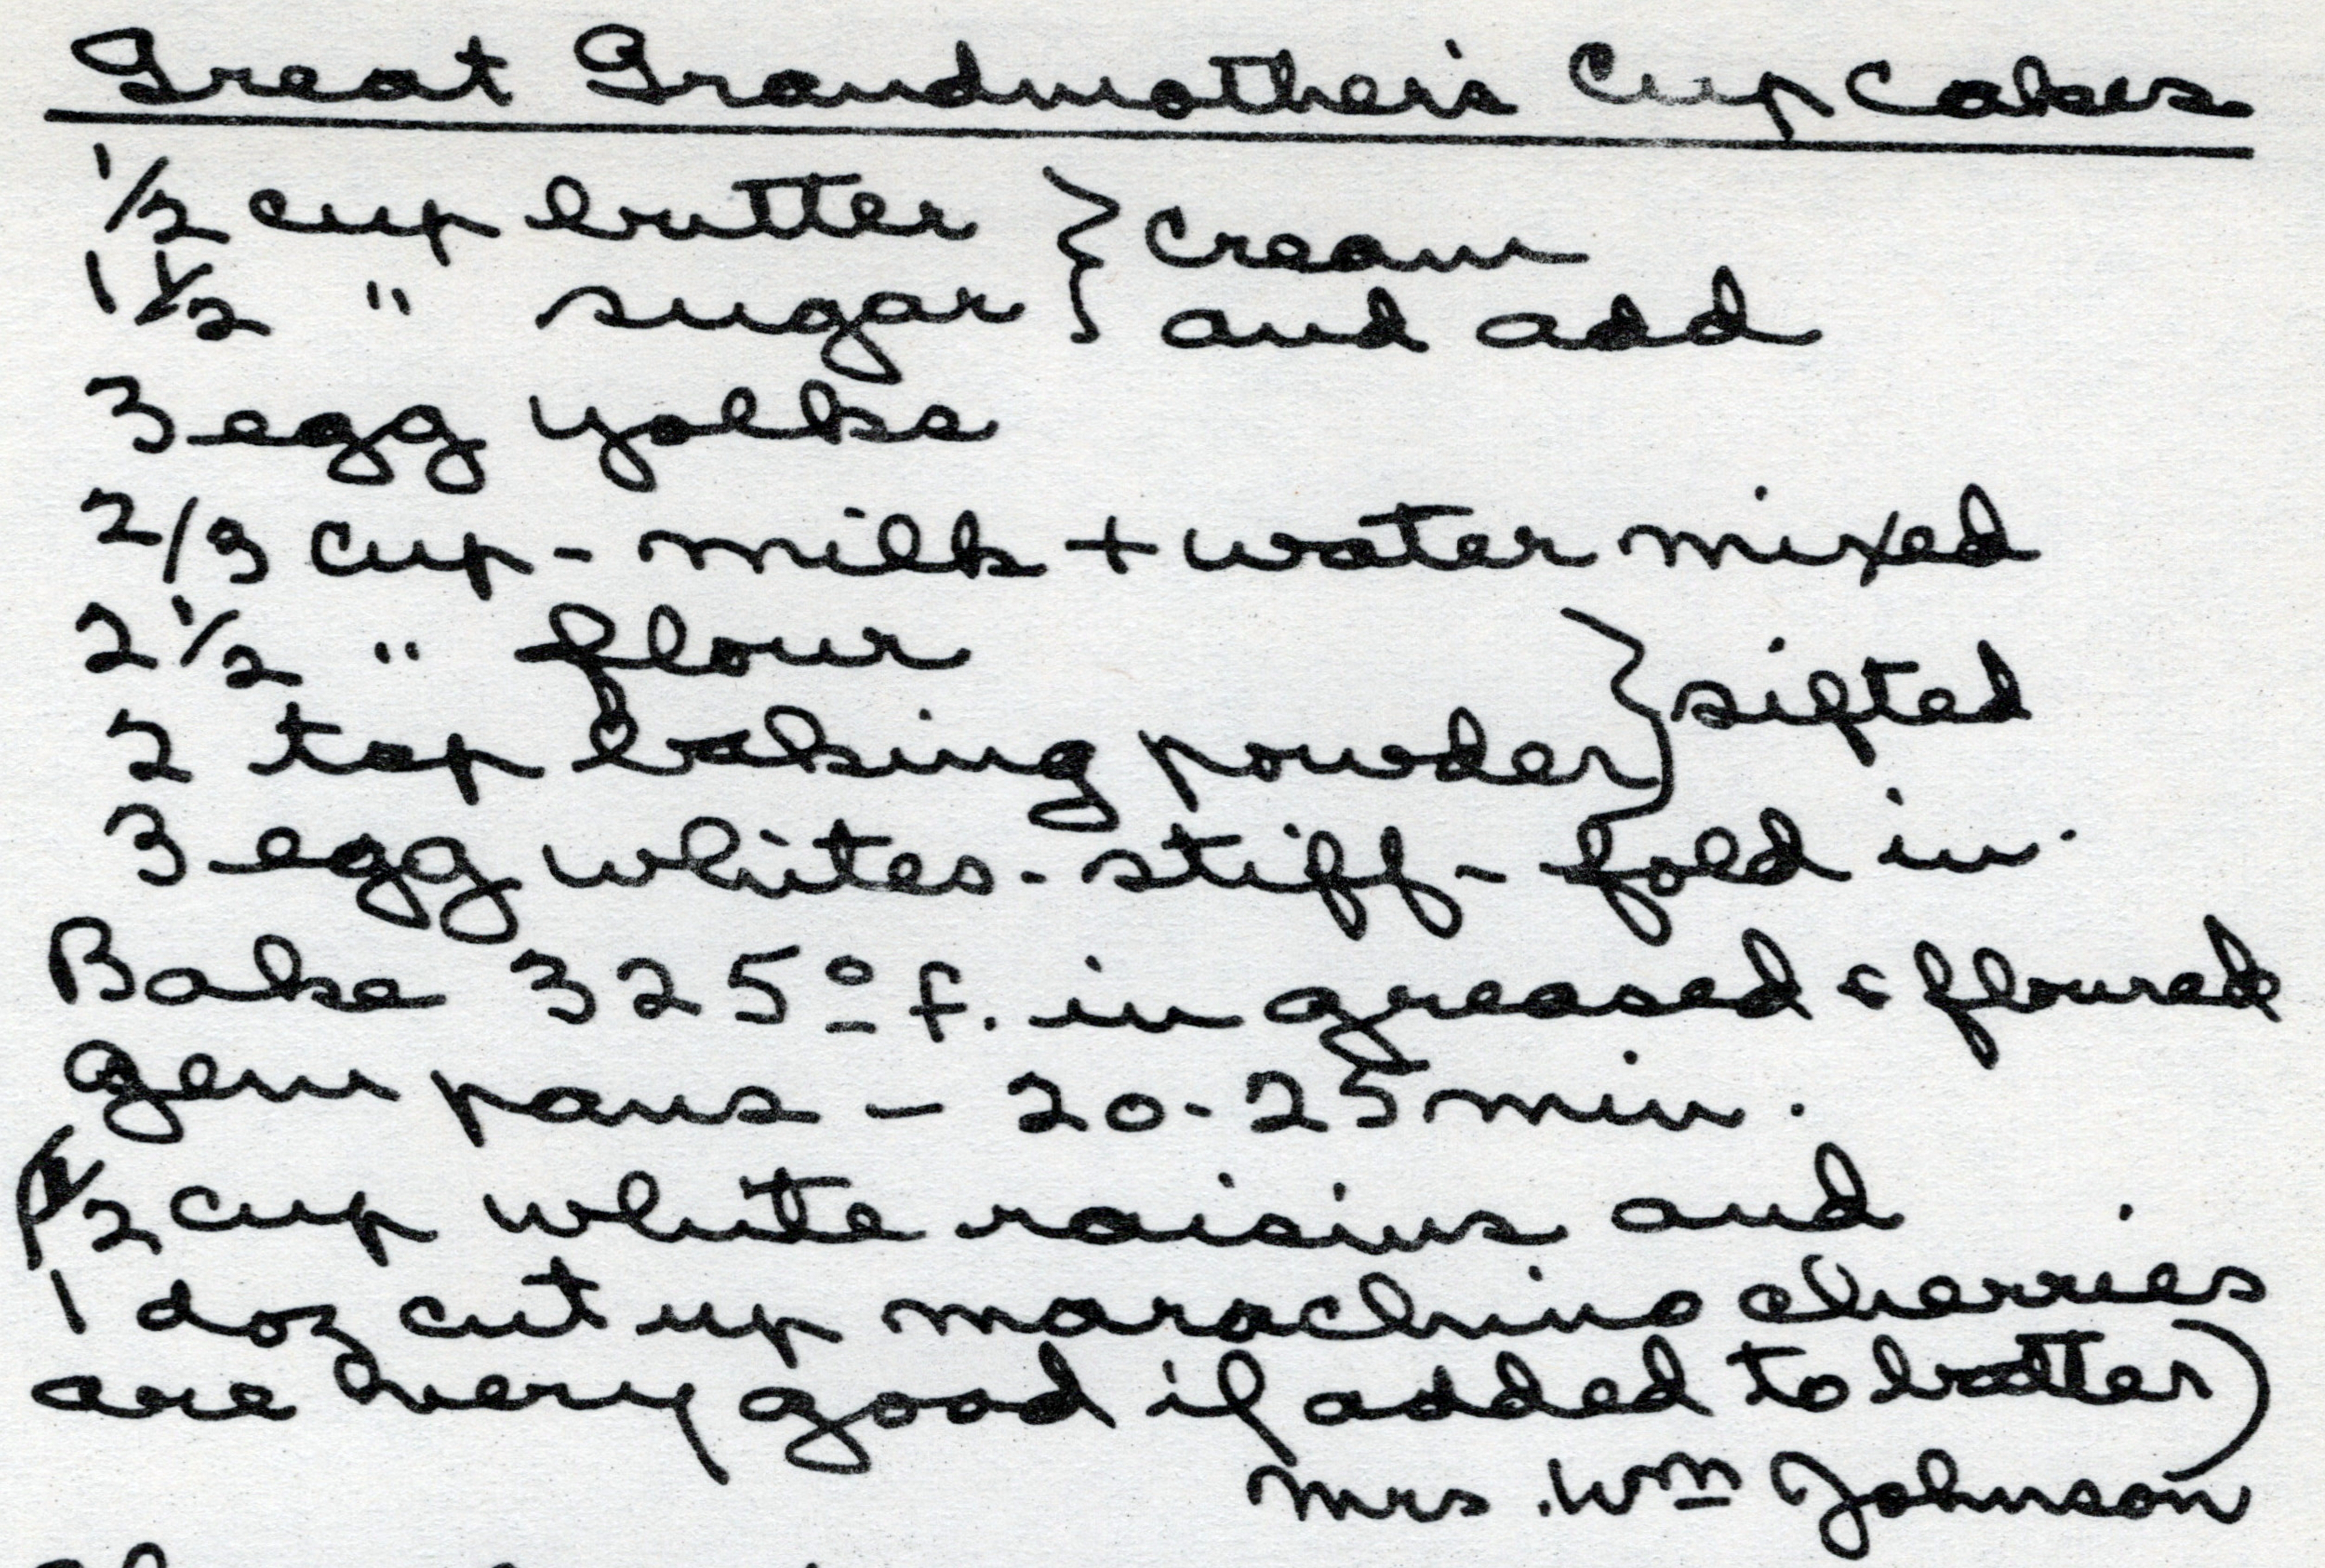 Great Grandmother's Cup Cakes
1/2 cup butter } cream
1 1/2 " sugar } and add
3 egg yolks
2/3 cup - milk + water mixed
2 1/2 " flour } sifted
2 tsp baking powder }
3 egg whites - stiff - fold in.
Bake 325° f. in greased & floured
gem pans - 20-25 min.
(1/2 cup white raisins and
1 doz cut up marachino cherries
are very good if added to batter)
Mrs. Wm Johnson